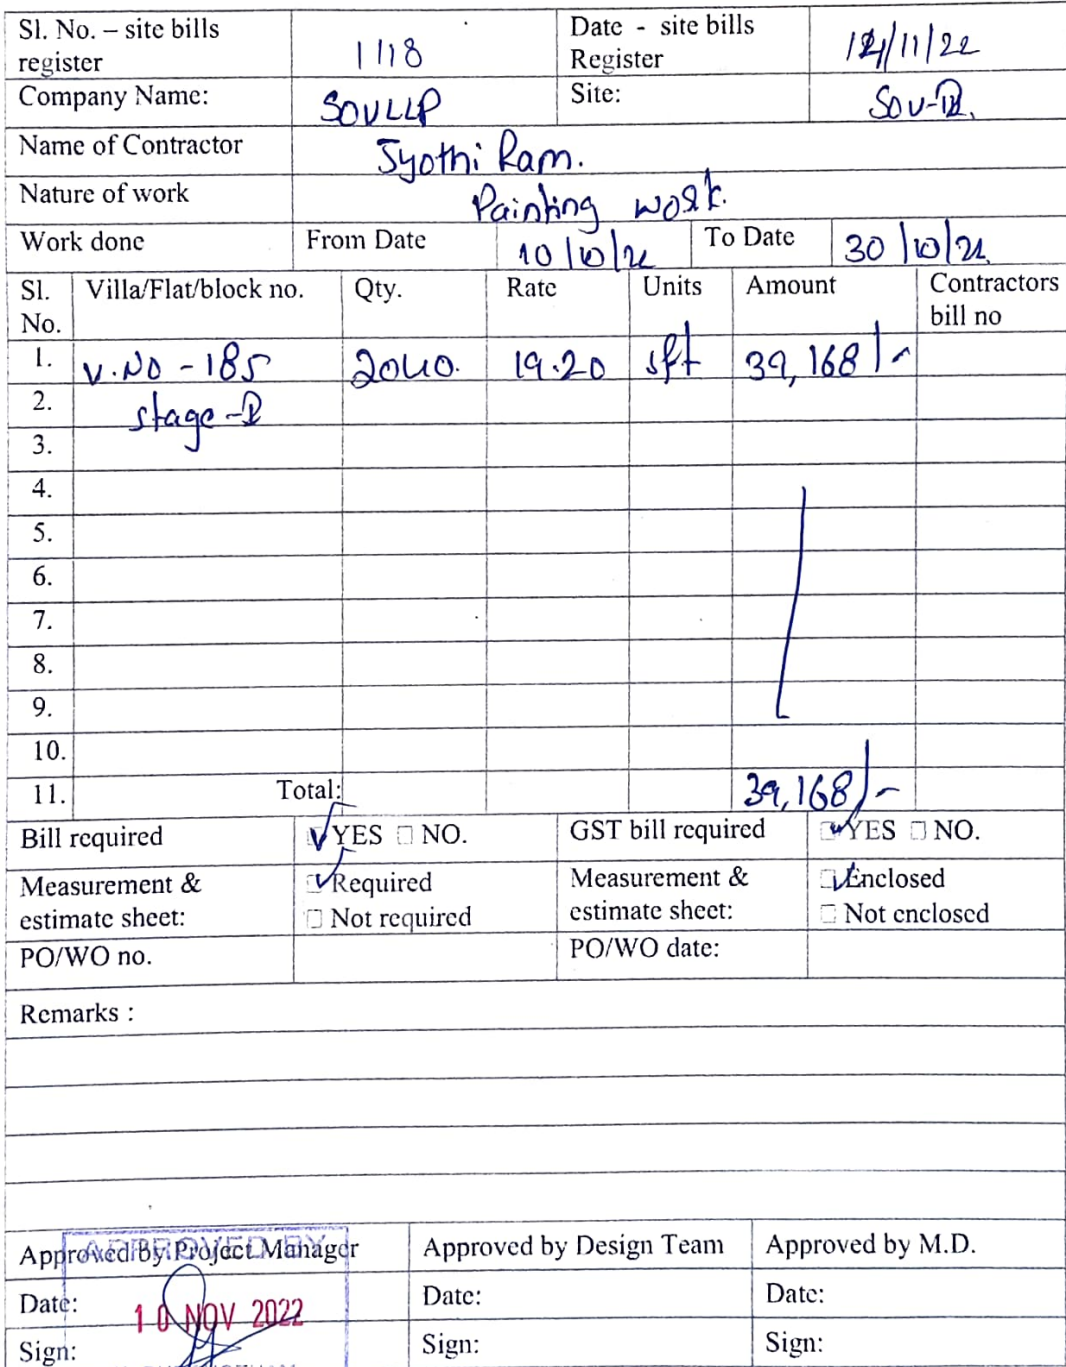 Sl. No. – site bills register 1118 Date - site bills Register /11/22
Company Name: SOVLLP Site: SOV-
Name of Contractor Jyothi Ram.
Nature of work Painting work.
Work done From Date 10/10/22 To Date 30/10/22
Sl. No. Villa/Flat/block no. Qty. Rate Units Amount Contractors bill no
1. V.NO - 185 2040. 19.20 sft 39,168/-
2. stage-
3.
4.
5.
6.
7.
8.
9.
10.
11. Total: 39,168/-
Bill required YES NO. GST bill required YES NO.
Measurement & estimate sheet: Required Not required Measurement & estimate sheet: Enclosed Not enclosed
PO/WO no. PO/WO date:
Remarks :
APPROVED BY
Approved by Project Manager Approved by Design Team Approved by M.D.
Date: 10 NOV 2022 Date: Date:
Sign: Sign: Sign: